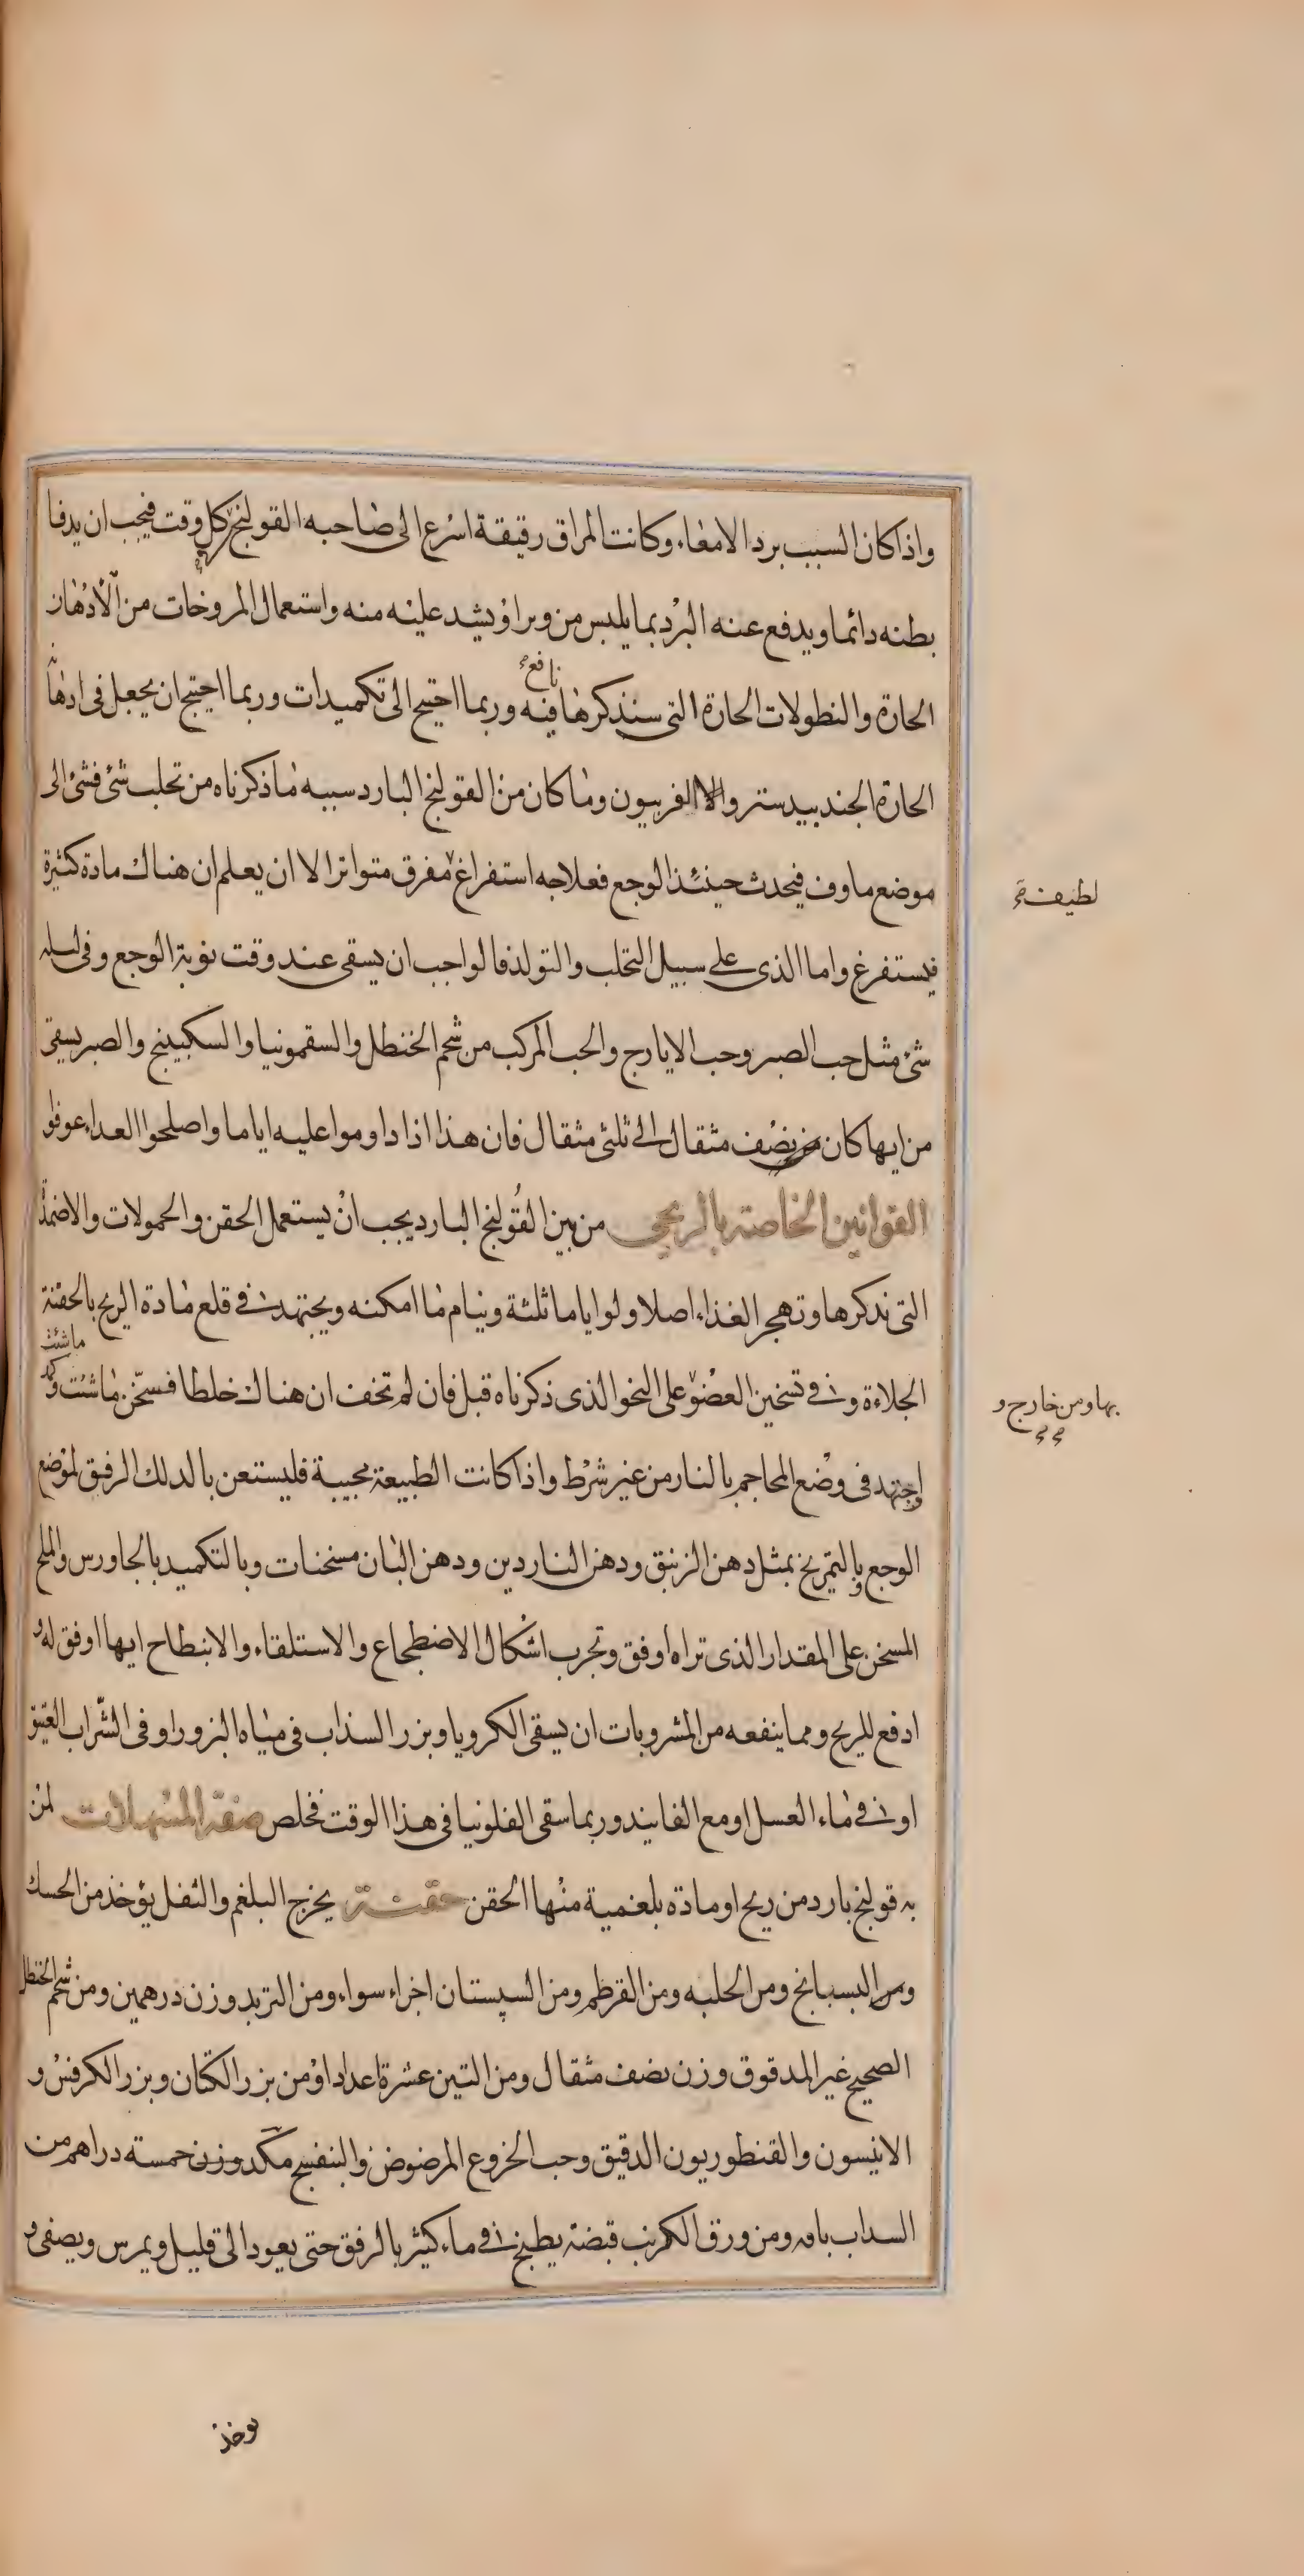 واذا كان السبب برد الامعاء وكانت المراق رقيقة اسرع الى صاحبه القولنج كل وقت فيجب ان يدفا
بطنه دائما ويدفع عنه البرد بما يلبس من وبر او يشد عليه منه واستعمال المروخات من الادهان
نافع
الحارة والنطولات الحارة التى سنذكرها فيه وربما احتيج الى تكميدات وربما احتيج ان يجعل فى ادهان
الحارة الجندبيدستر والفربيون وما كان من القولنج البارد سببه ما ذكرناه من تحلب شئ فشئ الى
موضع ماوف فيحدث حينئذ الوجع فعلاجه استفراغ مفرق متواتر الا ان يعلم ان هناك مادة كثيرة
لطيفة
فيستفرغ واما الذى على سبيل التحلب والتولد فالواجب ان يسقى عند وقت نوبة الوجع وفى ليله
شئ مثل حب الصبر وحب الايارج والحب المركب من شحم الحنظل والسقمونيا والسكبينج والصبر يسقى
من ايها كان من نصف مثقال الى ثلثى مثقال فان هذا اذا داوموا عليه اياما واصلحوا الغداء عوفوا
القوانين الخاصة بالريحى من بين القولنج البارد يجب ان يستعمل الحقن والحمولات والاضمد
التى نذكرها وتهجر الغذاء اصلا ولو اياما ثلثة وينام ما امكنه ويجتهد فى قلع مادة الريح بالحقنة
ماشئت
الجلاءة وفى تسخين العضو على النحو الذى ذكرناه قبل فان لم تخف ان هناك خلطا فسخن ما شئت وكمد
بها ومن خارج و
واجتهد فى وضع المحاجم بالنار من غير شرط واذا كانت الطبيعة مجيبة فليستعن بالدلك الرفيق لموضع
الوجع وبالتمريخ بمثل دهن الزنبق ودهن الناردين ودهن البان مسخنات وبالتكميد بالجاورس والملح
المسخن على المقدار الذى تراه اوفق وتجرب اشكال الاضطجاع والاستلقاء والانبطاح ايها اوفق له و
ادفع للريح ومما ينفعه من المشروبات ان يسقى الكرويا وبزر السذاب فى مياه البزور او فى الشراب العتيق
او فى ماء العسل او مع الفانيد وربما سقى الفلونيا فى هذا الوقت فخلص صفة المسهلات لمن
به قولنج بارد من ريح او مادة بلغمية منها الحقن حقنة يخرج البلغم والثفل يؤخذ من الحسك
ومن البسبايج ومن الحلبه ومن القرطم ومن السپستان اجزاء سواء ومن التربد وزن درهمين ومن شحم الحنظل
الصحيح غير المدقوق وزن نصف مثقال ومن التين عشرة اعداد او من بزر الكتان وبزر الكرفس و
الانيسون والقنطوريون الدقيق وحب الخروع المرضوض والبنفسج مكد وزن خمسته دراهم من
السداب باقه ومن ورق الكرنب قبضة يطبخ فى ماء كثير بالرفق حتى يعود الى قليل ويمرس ويصفى و
يوخذ